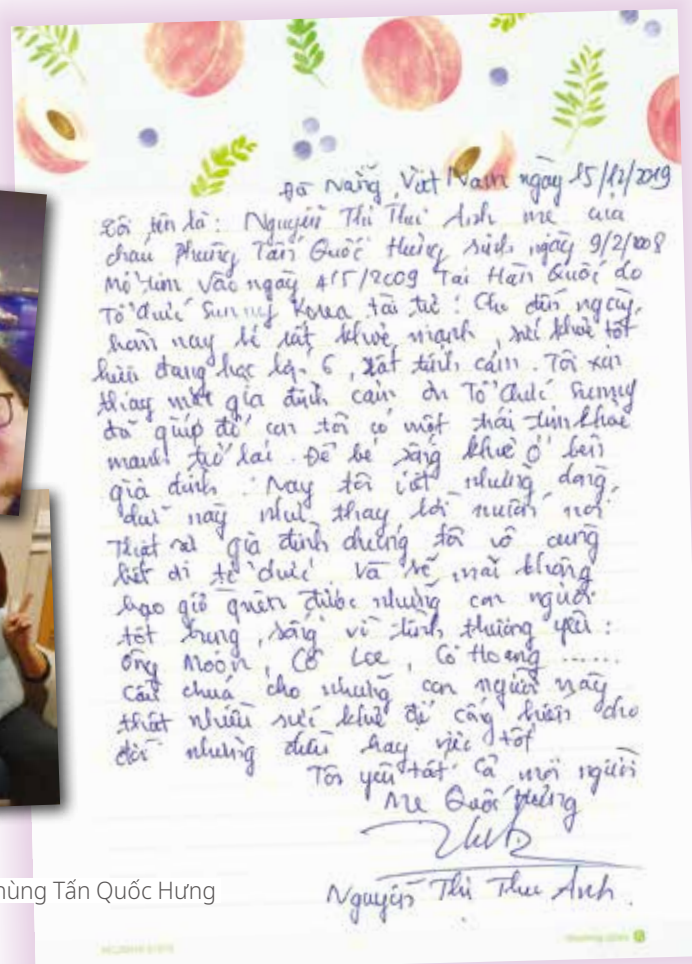 Đà Nẵng, Việt Nam ngày 15/12/2019
Tôi tên là: Nguyễn Thị Thu Anh mẹ của
cháu Phùng Tấn Quốc Hưng sinh ngày 9/2/2008
Mổ tim vào ngày 4/5/2009 Tại Hàn Quốc do
Tổ chức Sunny Korea tài trợ! Cho đến ngày
hôm nay bé rất khoẻ mạnh, sức khoẻ tốt
hiện đang học lớp 6, rất tình cảm. Tôi xin
thay mặt gia đình cảm ơn Tổ Chức Sunny
đã giúp đỡ con tôi có một trái tim khoẻ
mạnh trở lại. Để bé sống khoẻ ở bên
gia đình. Nay tôi viết những dòng
chữ này như thay lời muốn nói
Thật sự gia đình chúng tôi vô cùng
biết ơn tổ chức và sẽ mãi không
bao giờ quên được những con người
tốt bụng, sống vì tình thương yêu:
Ông Moon, Cô Lee, Cô Hoang ......
Cầu chúa cho những con người này
thật nhiều sức khoẻ để cống hiến cho
đời những điều hay việc tốt
Tôi yêu tất cả mọi người
Mẹ Quốc Hưng
Nguyễn Thị Thu Anh.
hùng Tấn Quốc Hưng